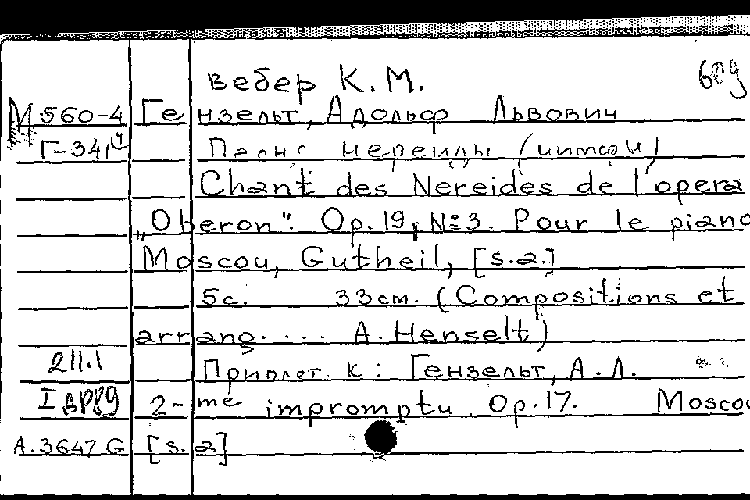 Вебер К.М. 609
М 560-4 Гензельт, Адольф Львович
Г-341 Песнь нереиды
Chant des Nereides de l'opera
„Oberon". Op. 19, №3. Pour le piano
Moscou, Gutheil, [s.a.]
5с. 33см. (Compositions et
arrang..... A. Henselt)
211.1 Приплет. к: Гензельт, А.Л.
I 2-me impromptu. Op. 17. Moscou
А.3647 G [s.a]